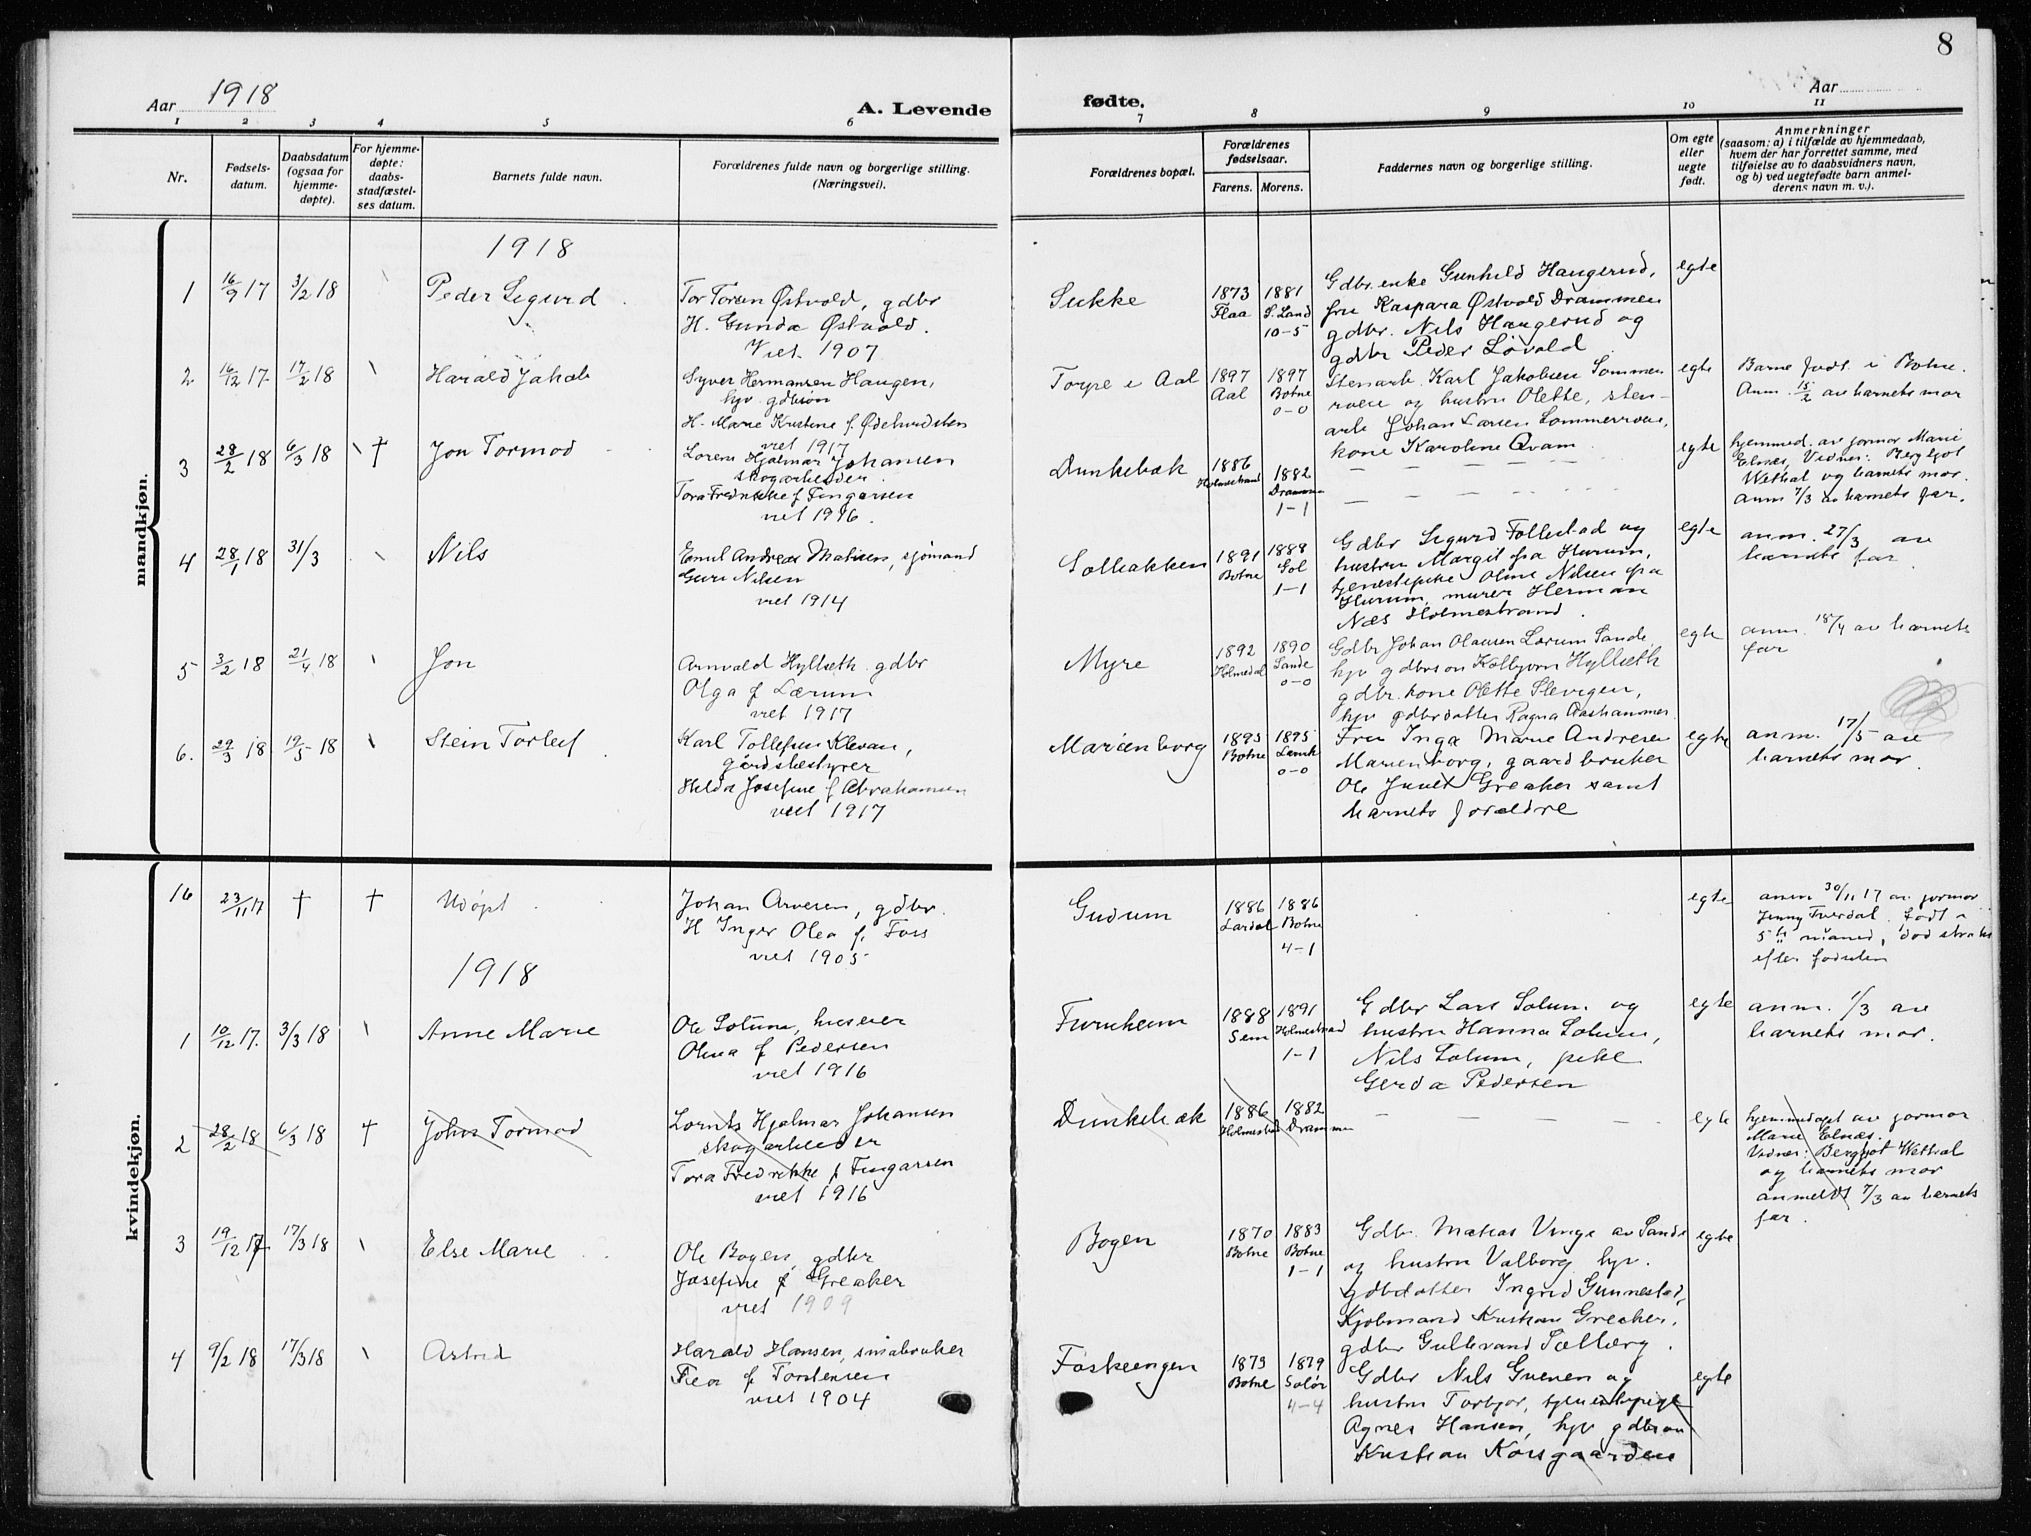 8
Aar 1918
A. Levende
fødte.
Aar
1 2 3 4 5 6 7 8 9 10 11
Nr.
Fødsels-
datum.
Daabsdatum
(ogsaa for
hjemme-
døpte).
For hjemme-
døpte:
daabs-
stadfæstel-
ses datum.
Barnets fulde navn.
Forældrenes fulde navn og borgerlige stilling.
(Næringsvei).
Forældrenes bopæl.
Forældrenes
fødselsaar.
Farens. Morens.
Faddernes navn og borgerlige stilling.
Om egte
eller
uegte
født.
Anmerkninger
(saasom: a) i tilfælde av hjemmedaab,
hvem der har forrettet samme, med
tilføielse av to daabsvidners navn,
og b) ved uegtefødte barn anmel-
derens navn m. v.).
mandkjøn.
1918
1 16/9 17 3/2 18 Peder Sigurd
Tor Toren Østvold, gdbr
H. Gunda Østvold.
Viet 1907
Sukke
1873 1881
Flaa S. Land
10-5
Gdbr.enke Gunhild Haugerud,
fru Kaspara Østvold Drammen
gdbr. Nils Haugerud og
gdbr Peder Løvald
egte
2 16/12 17 17/2 18 Harald Jakob
Syver Hermansen Haugen,
hjv. gdbrsøn
H. Marie Kristine f.
viet 1917
Torpe i Aal
1897 1897
Aal Botne
0-0
Stenarb. Karl Jakobsen Sommer
roen og hustru Olette, sten-
arb Johan Larsen Sommerroen,
kone Karoline Qvam
egte
Barne født i Botne.
Anm. 15/2 av barnets mor
3 28/2 18 6/3 18 † Jon Tormod
Lorens Hjalmar Johansen
skogarbeider
Tora Fredrikke f Fingarsen
viet 1916.
Dunkebæk
1886 1882
Holmestrand Drammen
1-1
egte
hjemmed. av jormor Marie
Elnæs, Vidner: Bergljot
Wethal og barnets mor.
anm 7/3 av barnets far.
4 28/1 18 31/3 Nils
Emil Andreas Matisen, sjømand
Guri Nilsen
viet 1914
Solbakken
1891 1888
Botne Gol
1-1
Gdbr Sigurd Follestad og
hustru Margit fra Hurum,
tjenestepike Oline Nilsen fra
Hurum, murer Herman
Næs Holmestrand.
egte
anm. 27/3 av
barnets far
5 3/2 18 21/4 18 Jon
Arnvald Hyllseth gdbr
Olga f Lærum
viet 1917
Myre
1892 1890
Holmedal Sande
0-0
Gdbr Johan Olausen Lærum Sande
hjv gdbrsøn Kolbjørn Hyllseth
gdbr. kone Olette Slevigen,
hjv gdbrdatter Ragna Aashammer
egte
anm. 18/4 av barnets
far
6. 29/3 18 19/5 18 Stein Torleif
Karl Tollefsen Klevan,
gårdsbestyrer
Hilda Josefine f Abrahamsen
viet 1917
Marienborg
1895 1895
Botne
0-0
Fru Inga Marie Andresen
Marienborg, gaardbruker
Ole Juvet Greaker samt
barnets forældre
egte
anm. 17/5 av
barnets mor.
kvindekjøn.
16 23/11 17 † † Udøpt
Johan Arvesen, gdbr.
H Inger Olea f. Foss
viet 1905
Gudum
1886 1886
Lardal Botne
4-1
egte
anm 30/11 17 av jormor
Jenny Tverdal. Født i
5te maaned, død straks
efter fødselen
1918
1 10/12 17. 3/3 18 Anne Marie
Ole Solum, huseier
Olina f Pedersen
viet 1916
Furuheim
1888 1891
Sem Holmestrand
1-1
Gdbr Lars Solum og
hustru Hanna Solum,
Nils Solum, pike
Gerda Pedersen
egte
anm. 1/3 av
barnets mor.
2 28/2 18 6/3 18 † John Tormod
Lornts Hjalmar Johansen
skogarbeider
Tora Fredrikke f Fingarsen
viet 1916
Dunkebæk
1886 1882
Holmestrand Drammen
egte
hjemmedøpt av jormor
Marie Elnæs.
Vidner: Bergljot Wethal
og barnets mor
anmeldt 7/3 av barnets
far.
3 19/12 17 17/3 18 Else Marie
Ole Bogen, gdbr
Josefine f Greaker
viet 1909
Bogen
1870 1883
Botne Botne
1-1
Gdbr. Matias Vinge av Sande
og hustru Valborg, hjv.
gdbdatter Ingrid Gunnestad,
Kjøbmand Kristian Greaker,
gdbr Gullbrand Sælberg.
egte
4 9/2 18 17/3 18 Astrid
Harald Hansen, småbruker
Thea f Torstensen
viet 1904
Foskeengen
1879 1879
Botne Solør
4-4
Gdbr Nils Grenen og
hustru Torbjør, tjenestepige
Agnes Hansen, hjv gdbrsøn
Kristian Korsgaarden
egte